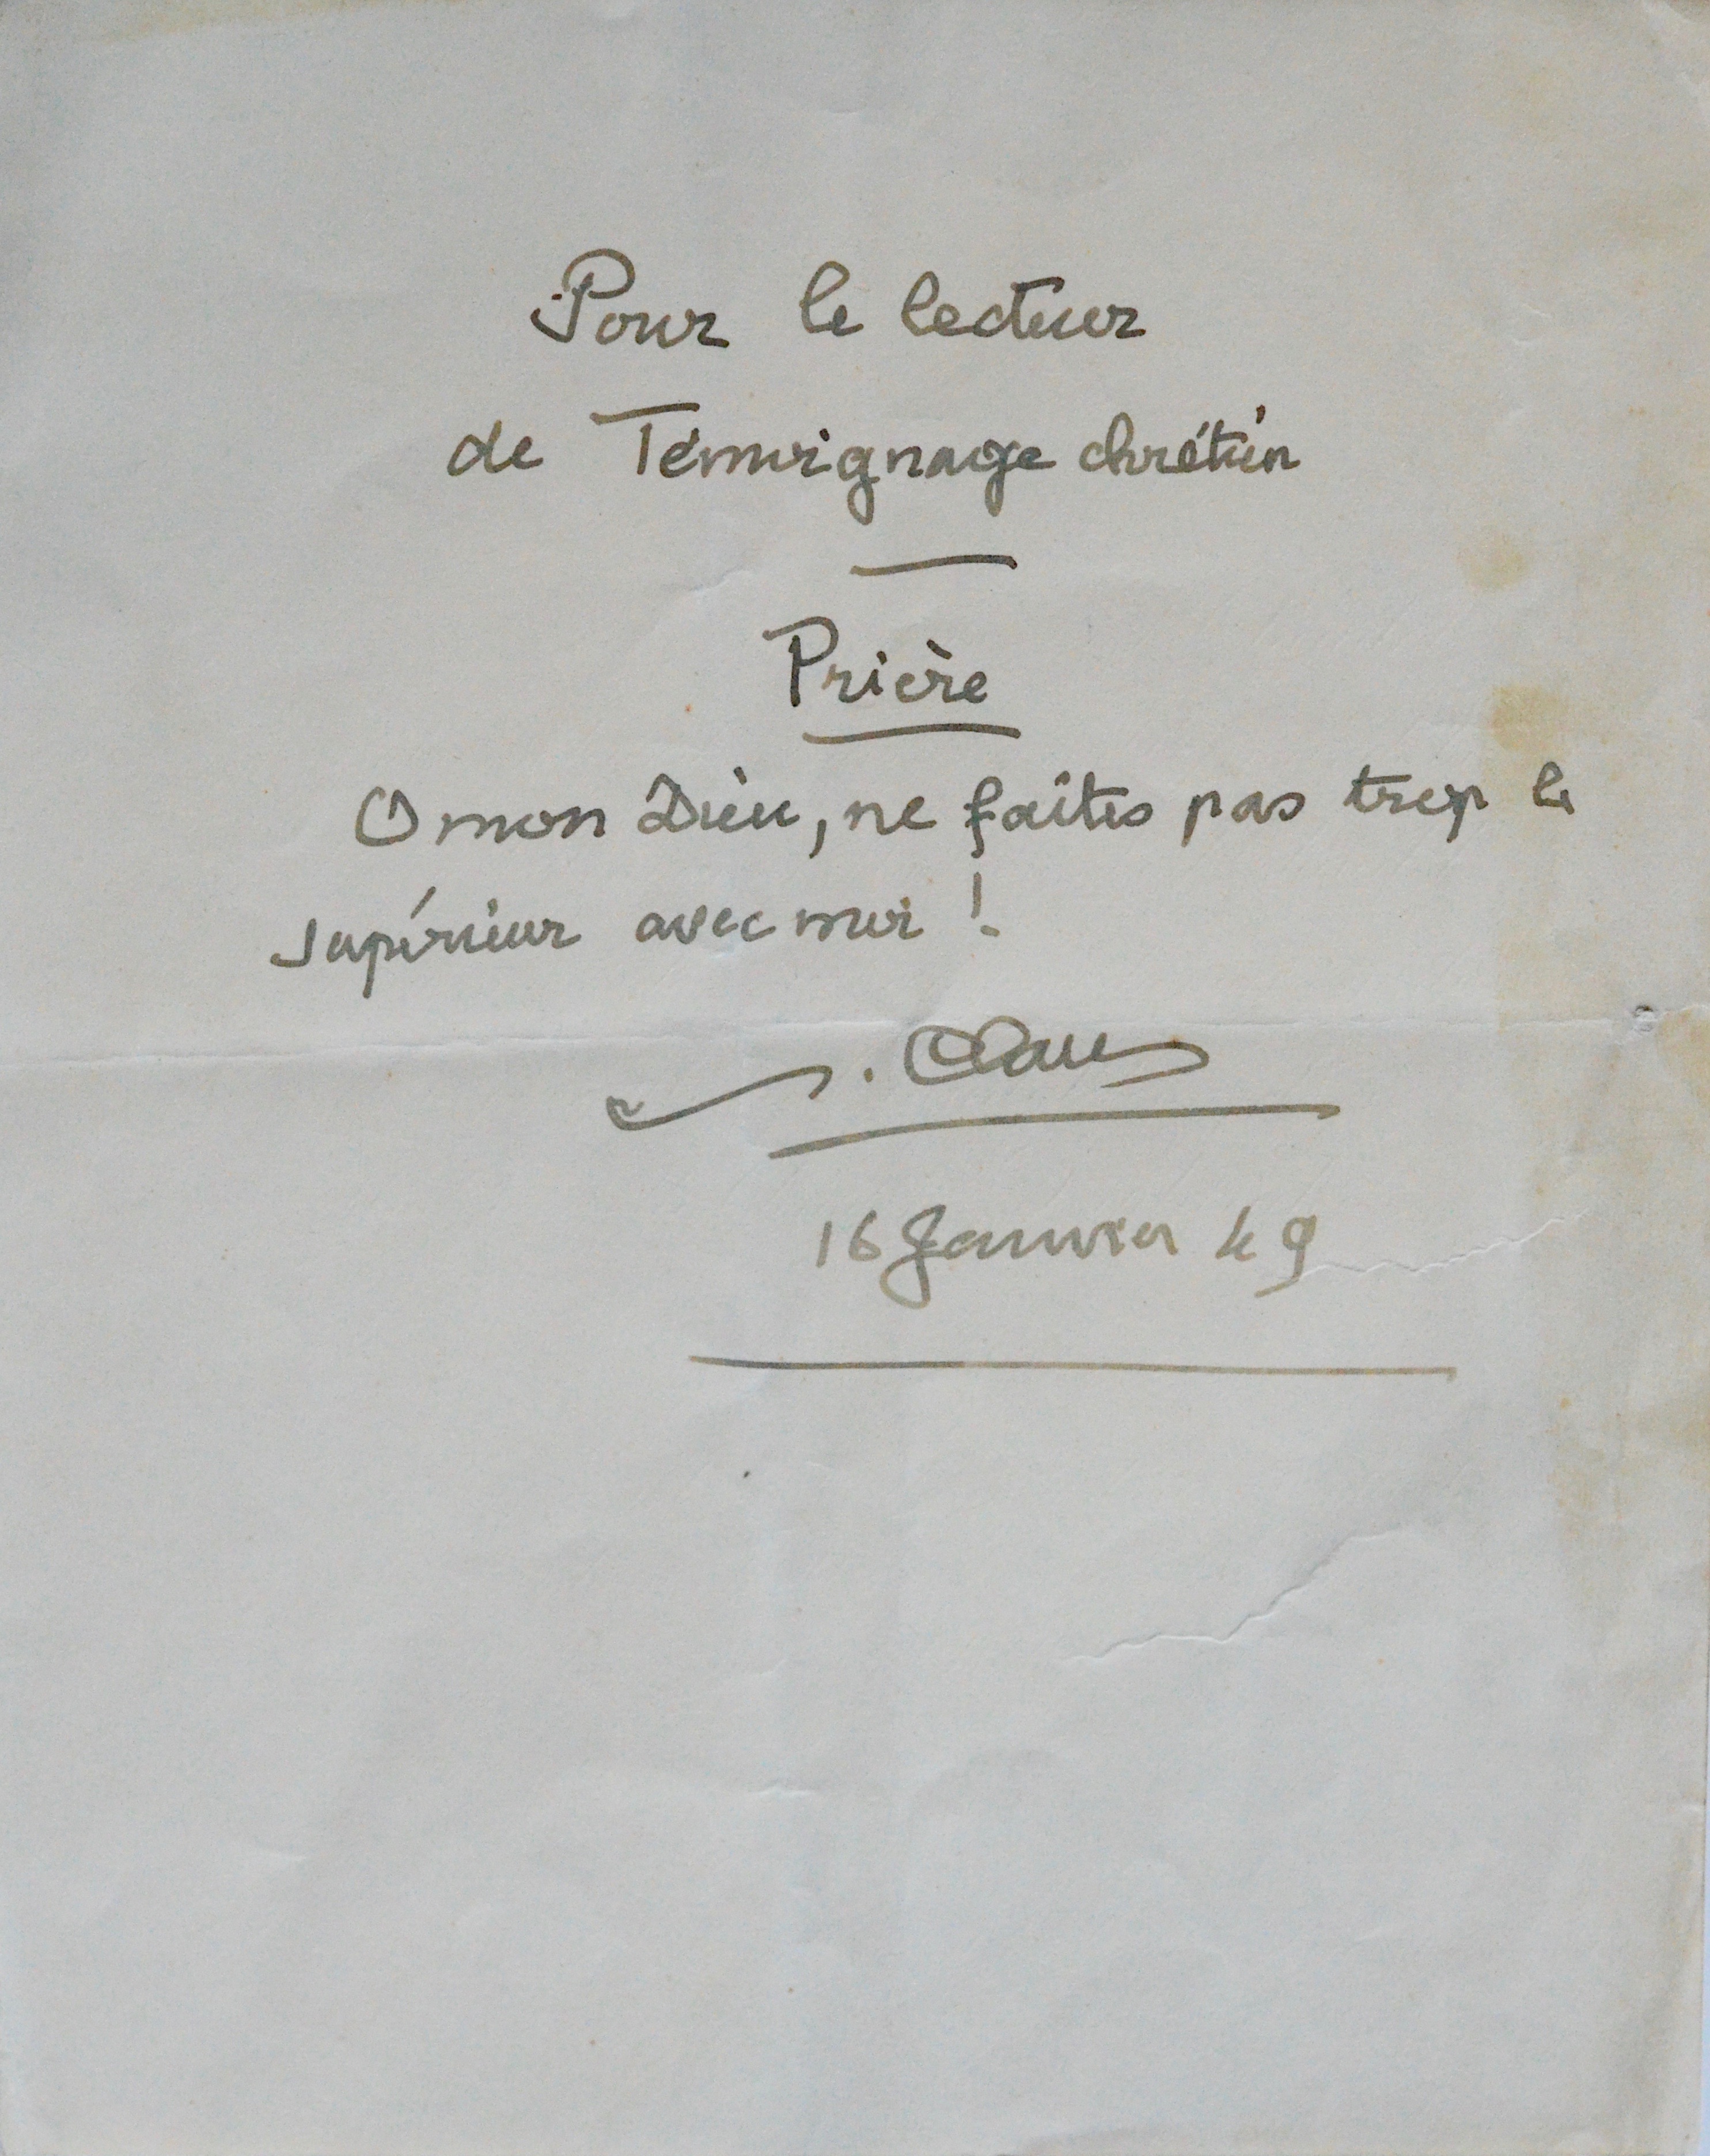 Pour le lecteur
de Témoignage chrétien
Prière
O mon Dieu, ne faîtes pas trop le
supérieur avec moi !
16 Janvier 49